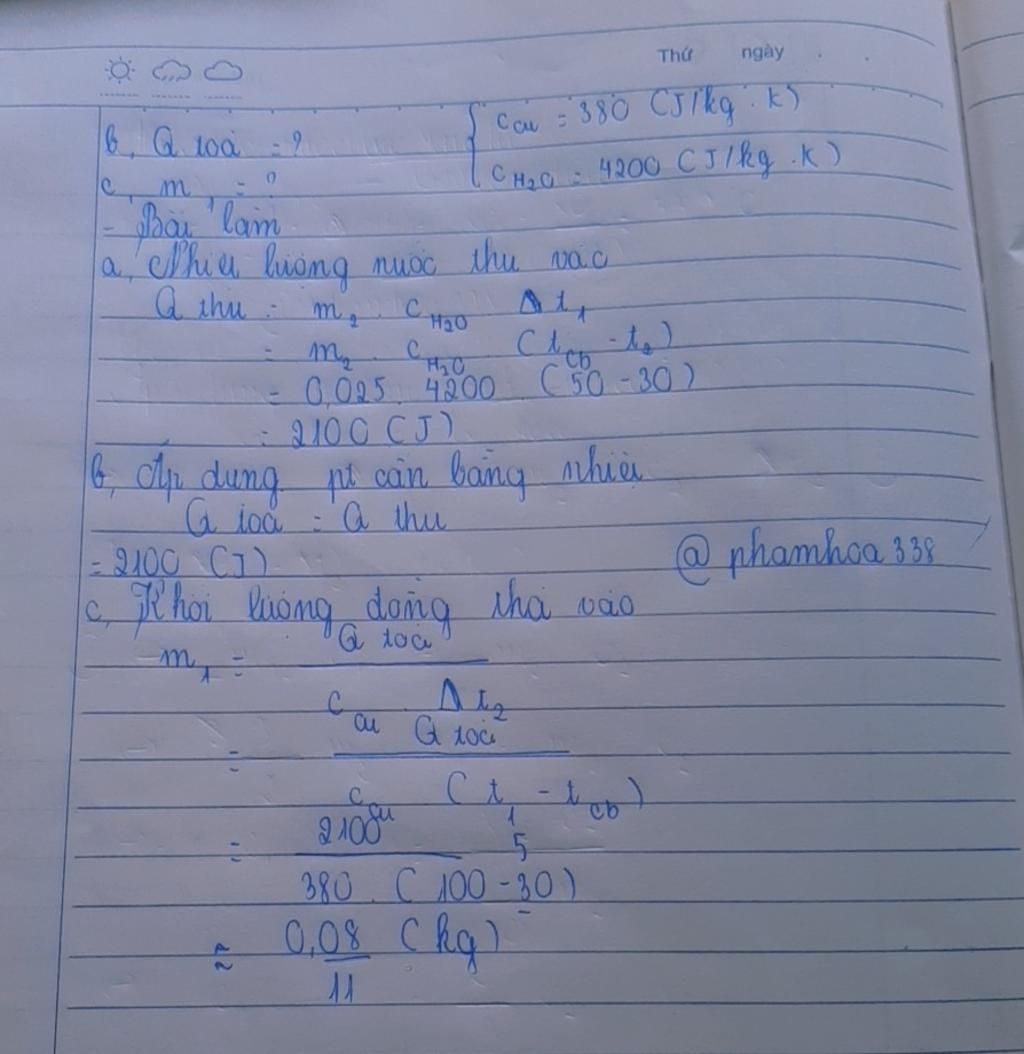 Thứ ngày
b, Q toả = ?
{ c_Cu = 380 (J/kg.K)
c, m₁ = ?
c_H2O = 4200 (J/kg.K)
- Bài làm
a, Nhiệt lượng nước thu vào
Q thu = m₂ . c_H2O . Δt₁
= m₂ . c_H2O (t_cb - t₂)
= 0,025. 4200 (50 - 30)
= 2100 (J)
b, Áp dụng pt cân bằng nhiệt
Q toả = Q thu
= 2100 (J)
@ phamhoa338
c, Khối lượng đồng thả vào
Q toả
m₁ =
c_Cu Δt₂
Q toả
=
c_Cu (t₁ - t_cb)
2100
=
5
380 . (100 - 30)
≈ 0,08 (kg)
11